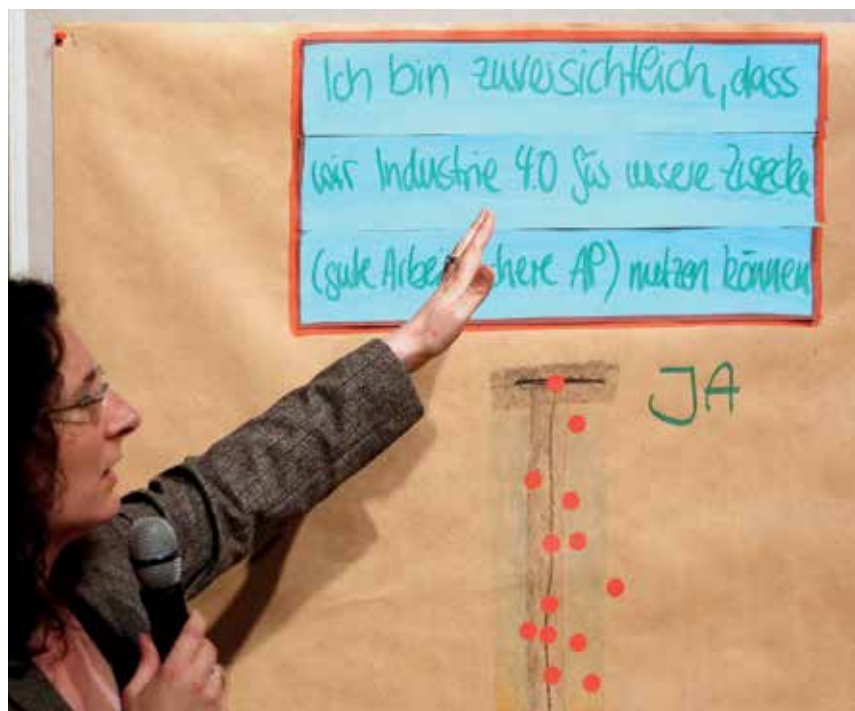 Ich bin zuversichtlich, dass
wir Industrie 4.0 für unsere Zwecke
(gute Arbei here AP) nutzen können
JA